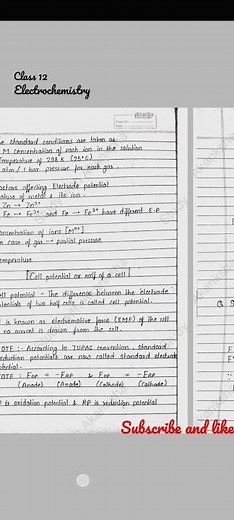 Class 12
Electrochemistry
standard conditions are taken as
M concentration of each ion in the solution
Temperature of 298 K (25°C)
atm / 1 bar pressure for each gas.
factors affecting Electrode potential
nature of metal & its ion
Zn → Zn²⁺
Fe → Fe²⁺ and Fe → Fe³⁺ have different E.P
concentration of ions [Mⁿ⁺]
In case of gas → partial pressure
Temperature
[Cell potential or emf of a cell]
Cell potential - The difference between the electrode
potentials of two half cells is called cell potential.
is known as electromotive force (EMF) of the cell
no current is drawn from the cell.
NOTE :- According to IUPAC convention, standard
reduction potentials are now called standard electrode
potential.
NOTE : EOP = -ERP & EOP = -ERP
(Anode) (Anode) (Cathode) (Cathode)
OP is oxidation potential & RP is reduction potential
Subscribe and like